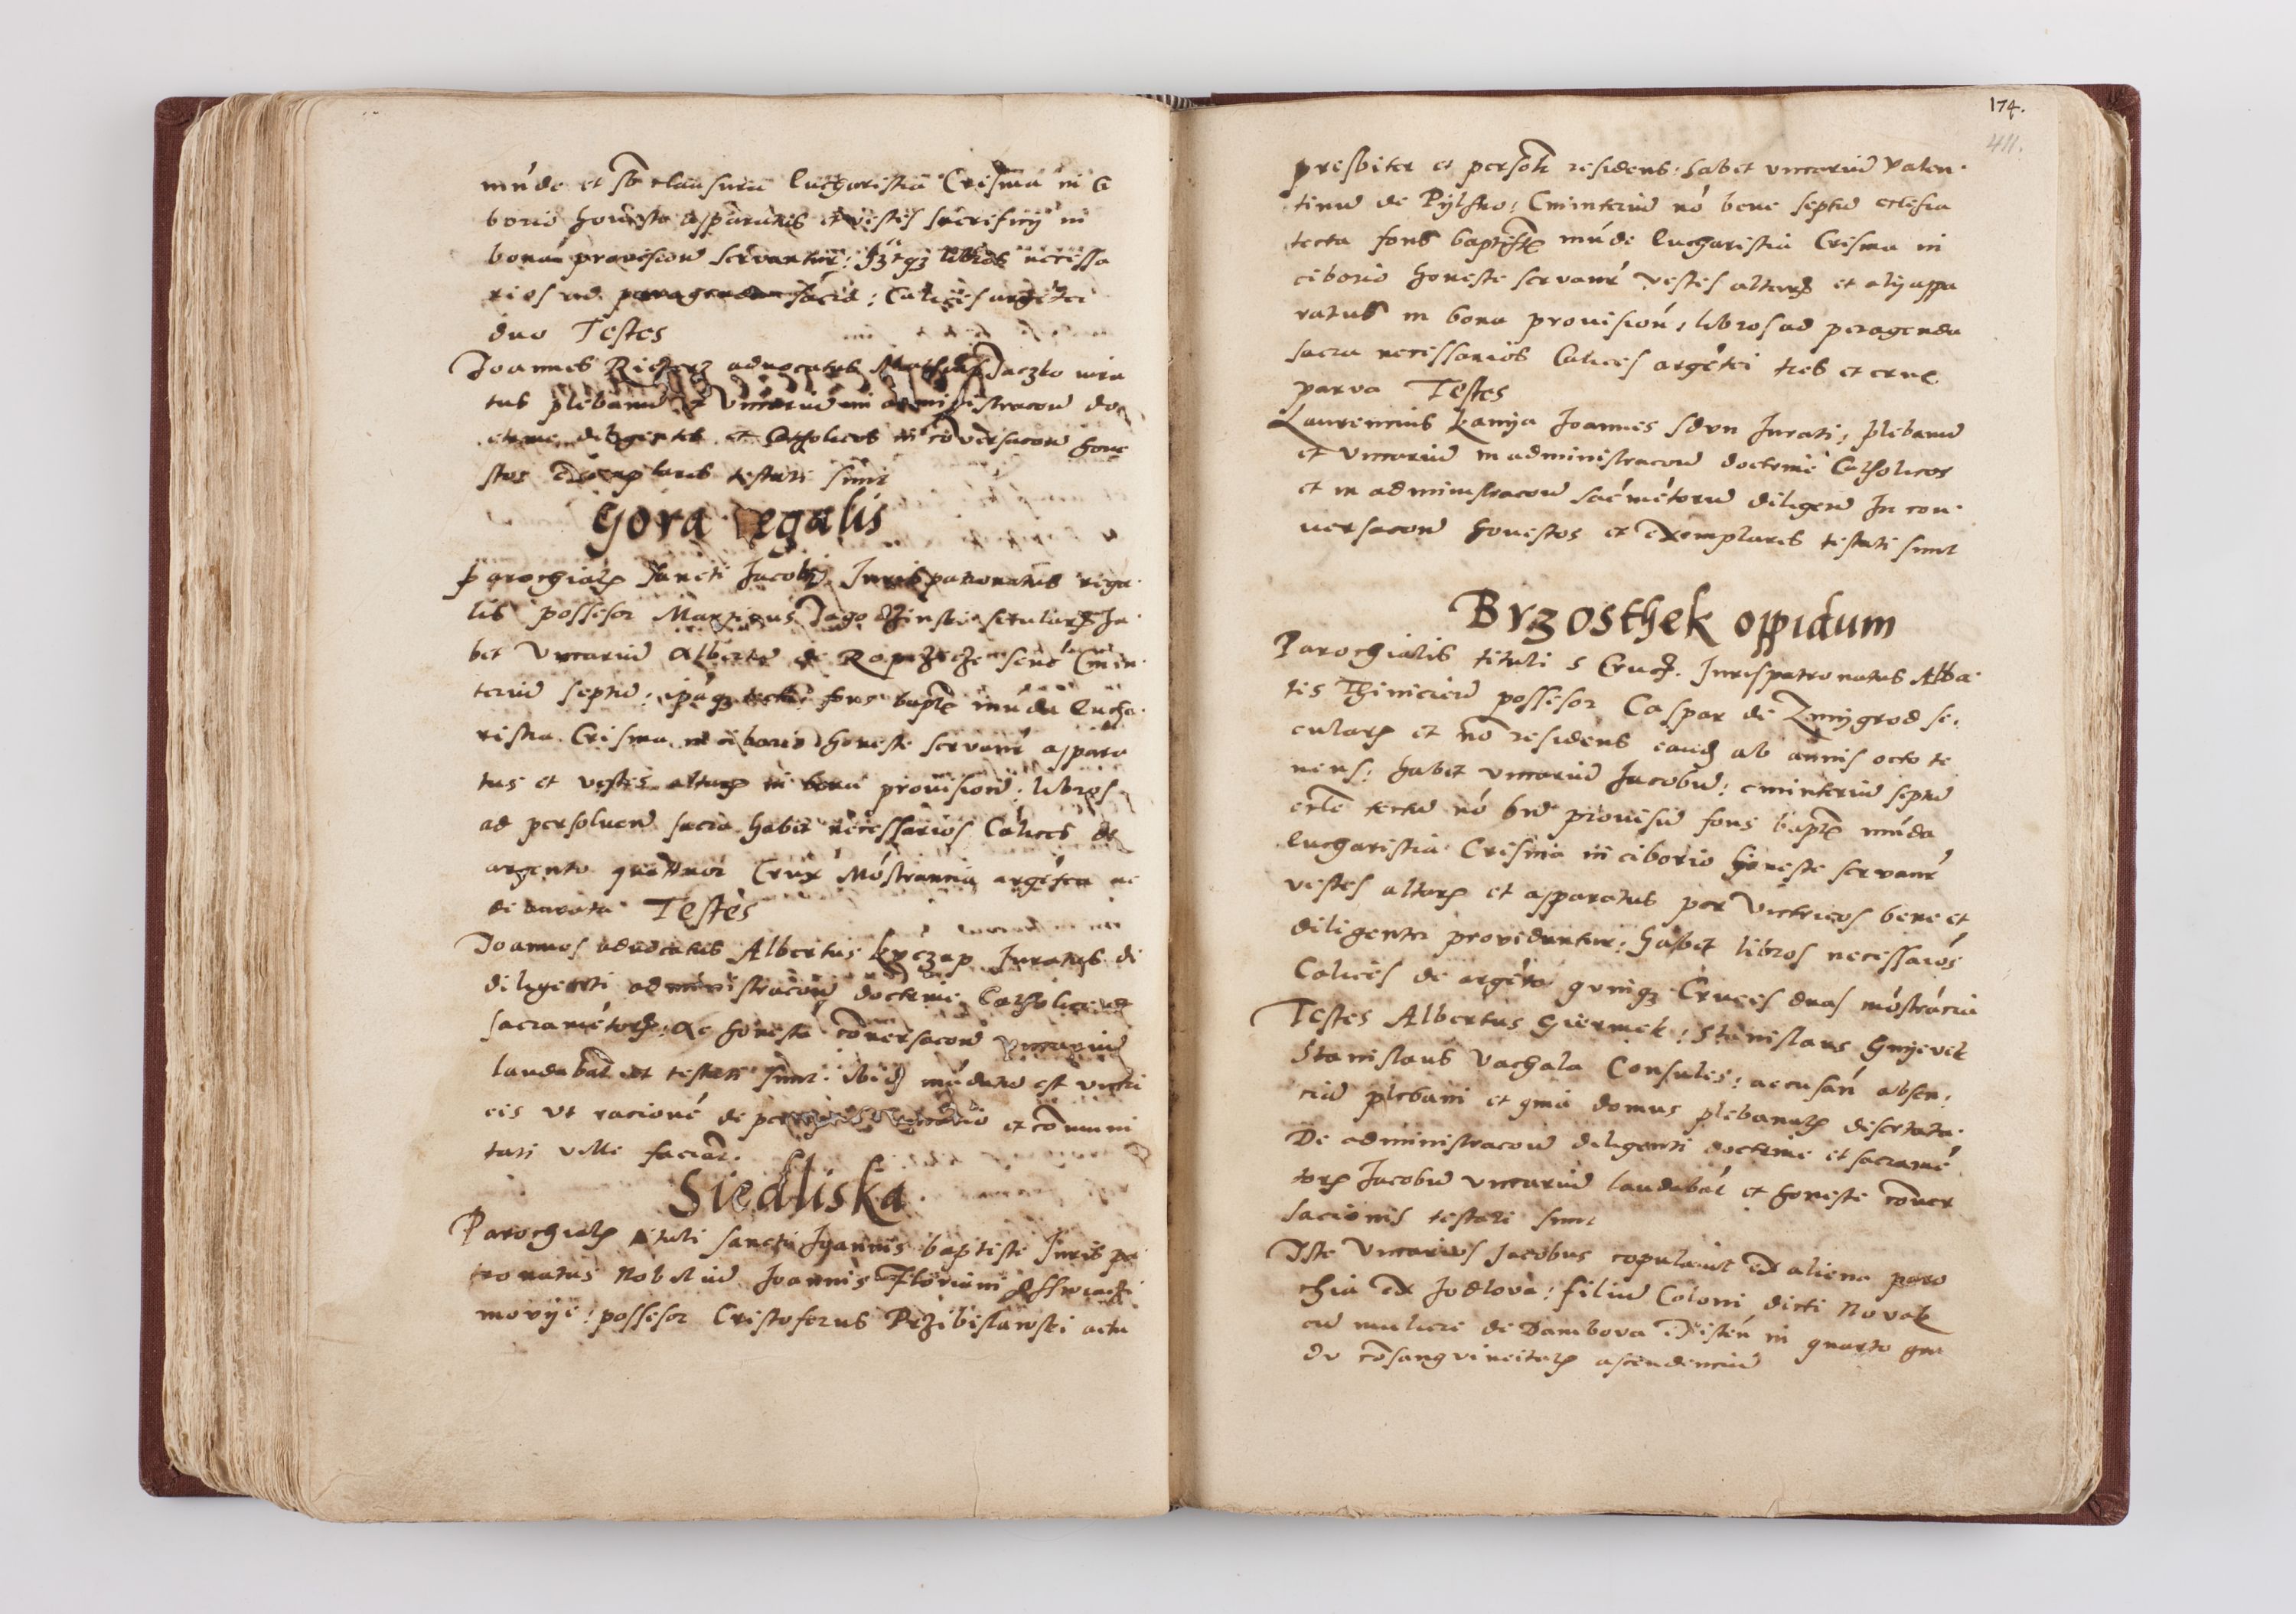 mūde et sb clausura Eucharistia Crisma in ci
borio honeste apparatus et vestes sacrificij in
bonam provisionē servantur: libros necessa
rios ad peragendum sacra: Calices argētei
duo Testes
Joannes advocatus Jaczko iura
tus plebanū et vicariū in administracone do
ctrine diligentes et Catholicos in cōversacone hone
stos exemplares testati sunt
Gora Regalis
Parochialis Sancti Jacobi Jurispatronatus rega
lis possesor Martinus Jagodzinski secularis ha
bet vicariū Albertū de Ropczicze Cmin
teriū septū: tecta fons bapte mūda Eucha
ristia Crisma in ciborio honeste servant appara
tus et vestes altaris in bona provisione: libros
ad persolvend sacra habet necessarios Calices de
argento quattuor Crux Mōstrancia argētea
deaurata Testes
Joannes advocatus Albertus Juratus de
diligenti administracone doctrine Catholice et
sacramētorum: ac honesta cōversacone vicariū
laudabāt et testati sunt: ibidem mādatū est vitri
cis ut racionē de et cōmuni
tati ville faciāt.
Siedliska
Parochialis tituli sancti Joannis baptiste Juris pa
tronatus Nobiliū Joannis Floriani
movije: possesor Cristoferus Przibislawski actu
174.
411.
presbiter et personaliter residens: habet vicariū Valen
tinū de Pylsno: Cminteriū nō bene septū eclesia
tecta fons baptiste mūde Eucharistia Crisma in
ciborio honeste servant vestes altaris et alij appa
ratus in bona provisione, libros ad peragenda
sacra necessarios Calices argētei tres et crux
parva Testes
Laurencius Kanya Joannes Sdvn Jurati, plebanū
et vicariū in administracone doctrine Catholicos
et in administracone sacramētorū diligen In con
versacone honestos et exemplares testati sunt
Brzosthek oppidum
Parochialis tituli S Crucis. Jurispatronatus Abba
tis Thiniciens possesor Caspar de Zmygrod se
cularis et nō residens eand ab annis octo te
nens: habet vicariū Jacobū: cminteriū septū
ecle tectū nō bn provisū fons bapte mūda
Eucharistia Crisma in ciborio honeste servant
vestes altaris et apparatus per vitricos bene et
diligenter providentur: habet libros necessarios
Calices de argēto quinque Cruces duas mōstrācia
Testes Albertus Giermek: Stanislaus Gnyevek
Stanislaus Vachala Consules: accusan absen
ciā plebani et quia domus plebanalis desertata.
De administracone diligenti doctrine et sacramē
torum Jacobū vicariū laudabāt et honeste cōver
sacionis testati sunt
Iste Vicarius Jacobus copulavit ex aliena paro
chia ex Jodlova: filiū Coloni dicti Novak
cū muliere de Dambova existēn in quarto gra
du cōsangvineitatis ascendenciū